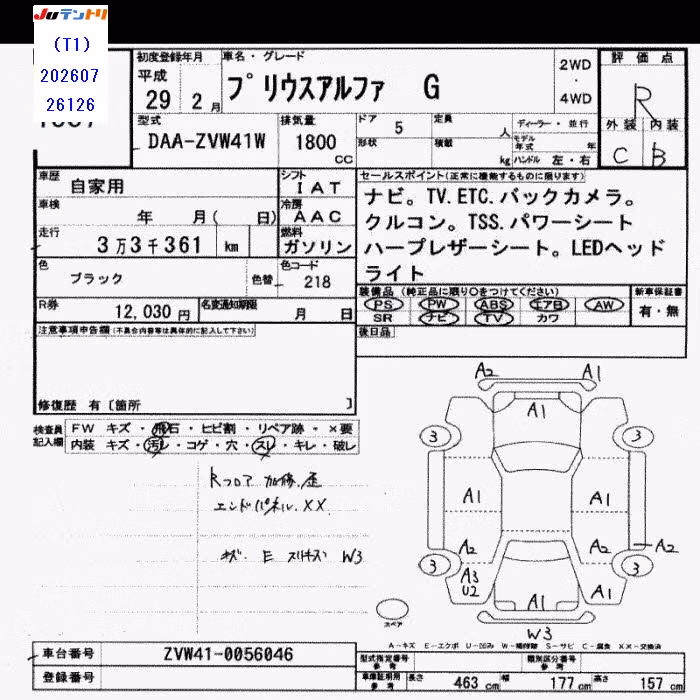 JUテントリ
(T1)
202607
26126
初度登録年月
平成
29 2 月
車名・グレード
プリウスアルファ G
2WD
4WD
評価点
R
外装 内装
C B
型式
DAA-ZVW41W
排気量
1800
CC
ドア
5
形状
定員
人
積載
kg
ディーラー・並行
モデル年式
年
ハンドル 左・右
車歴
自家用
シフト
IAT
車検
年 月( 日)
冷房
AAC
走行
3万3千361 km
燃料
ガソリン
色
ブラック
色替
色コード
218
R券
12,030 円
名変通知期限
月 日
セールスポイント(正常に機能するものに限ります)
ナビ。TV.ETC.バックカメラ。
クルコン。TSS.パワーシート
ハーフレザーシート。LEDヘッド
ライト
装備品(純正品に限り○をつけてください)
新車保証書
PS PW ABS エアB AW
SR ナビ TV カワ
有・無
後日品
注意事項申告欄(不具合内容等は具体的に記入して下さい)
修復歴 有〔箇所 〕
検査員記入欄
FW キズ・飛石・ヒビ割・リペア跡・×要
内装 キズ・汚レ・コゲ・穴・スレ・キレ・破レ
Rフロア 加修.歪
エンドパネル.XX
キズ. E スリキズ W3
A2 A1
A1
3 3
A1 A1
A2 A2 A2
3 3
A3
U2
A1 A1
W3
スペア
A-キズ E-エクボ U-凹み W-補修跡 S-サビ C-腐食 XX-交換済
車台番号
ZVW41-0056046
登録番号
型式指定番号
参考
類別区分番号
参考
車庫証明用
参考
長さ 463 cm 幅 177 cm 高さ 157 cm